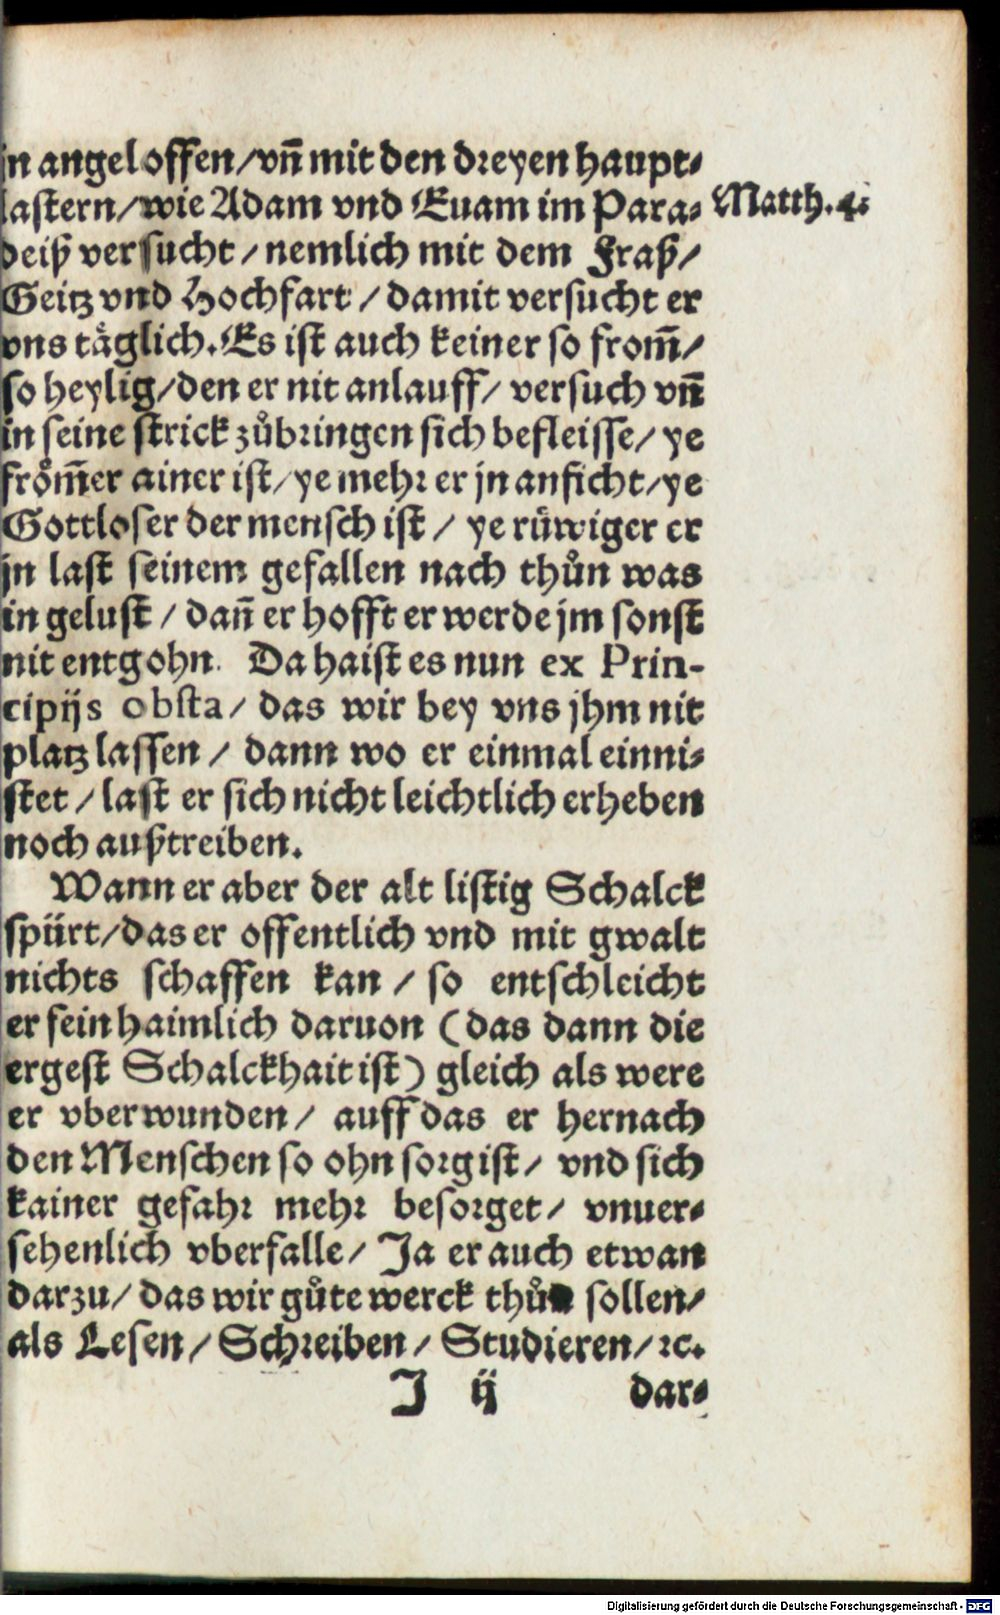 jn angeloffen / vn̄ mit den dreyen haupt⸗
lastern / wie Adam vnd Euam im Para⸗
Matth. 4.
deiß versucht / nemlich mit dem Fraß /
Geitz vnd Hochfart / damit versucht er
vns täglich. Es ist auch keiner so from̄ /
so heylig / den er nit anlauff / versuch vn̄
in seine strick zů bringen sich befleisse / ye
fröm̄er ainer ist / ye mehr er jn anficht / ye
Gottloser der mensch ist / ye rüwiger er
jn last seinem gefallen nach thůn was
in gelust / dan̄ er hofft er werde jm sonst
nit entgohn. Da haist es nun ex Prin-
cipijs obsta / das wir bey vns jhm nit
platz lassen / dann wo er einmal einni⸗
stet / last er sich nicht leichtlich erheben
noch außtreiben.
Wann er aber der alt listig Schalck
spürt / das er offentlich vnd mit gwalt
nichts schaffen kan / so entschleicht
er fein haimlich daruon (das dann die
ergest Schalckhait ist) gleich als were
er vberwunden / auff das er hernach
den Menschen so ohn sorg ist / vnd sich
kainer gefahr mehr besorget / vnuer⸗
sehenlich vberfalle / Ja er auch etwan
darzu / das wir gůte werck thůn sollen /
als Lesen / Schreiben / Studieren / ꝛc.
J ij dar⸗
Digitalisierung gefördert durch die Deutsche Forschungsgemeinschaft - DFG